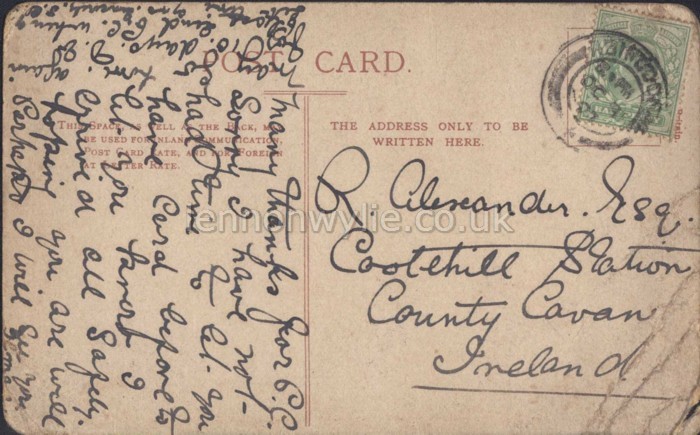 POST CARD.
THIS SPACE, AS WELL AS THE BACK, MAY
BE USED FOR INLAND COMMUNICATION,
POST CARD RATE, AND FOR FOREIGN
AT LETTER RATE.
THE ADDRESS ONLY TO BE
WRITTEN HERE.
R. Alexander. Esq.
Cootehill Station
County Cavan
Ireland
Many thanks for P.C.
Sorry I have not
had time to let you
have card before to
let you know I
arrived all safely.
hoping you are well
Perhaps I will see you
again.
lennonwylie.co.uk